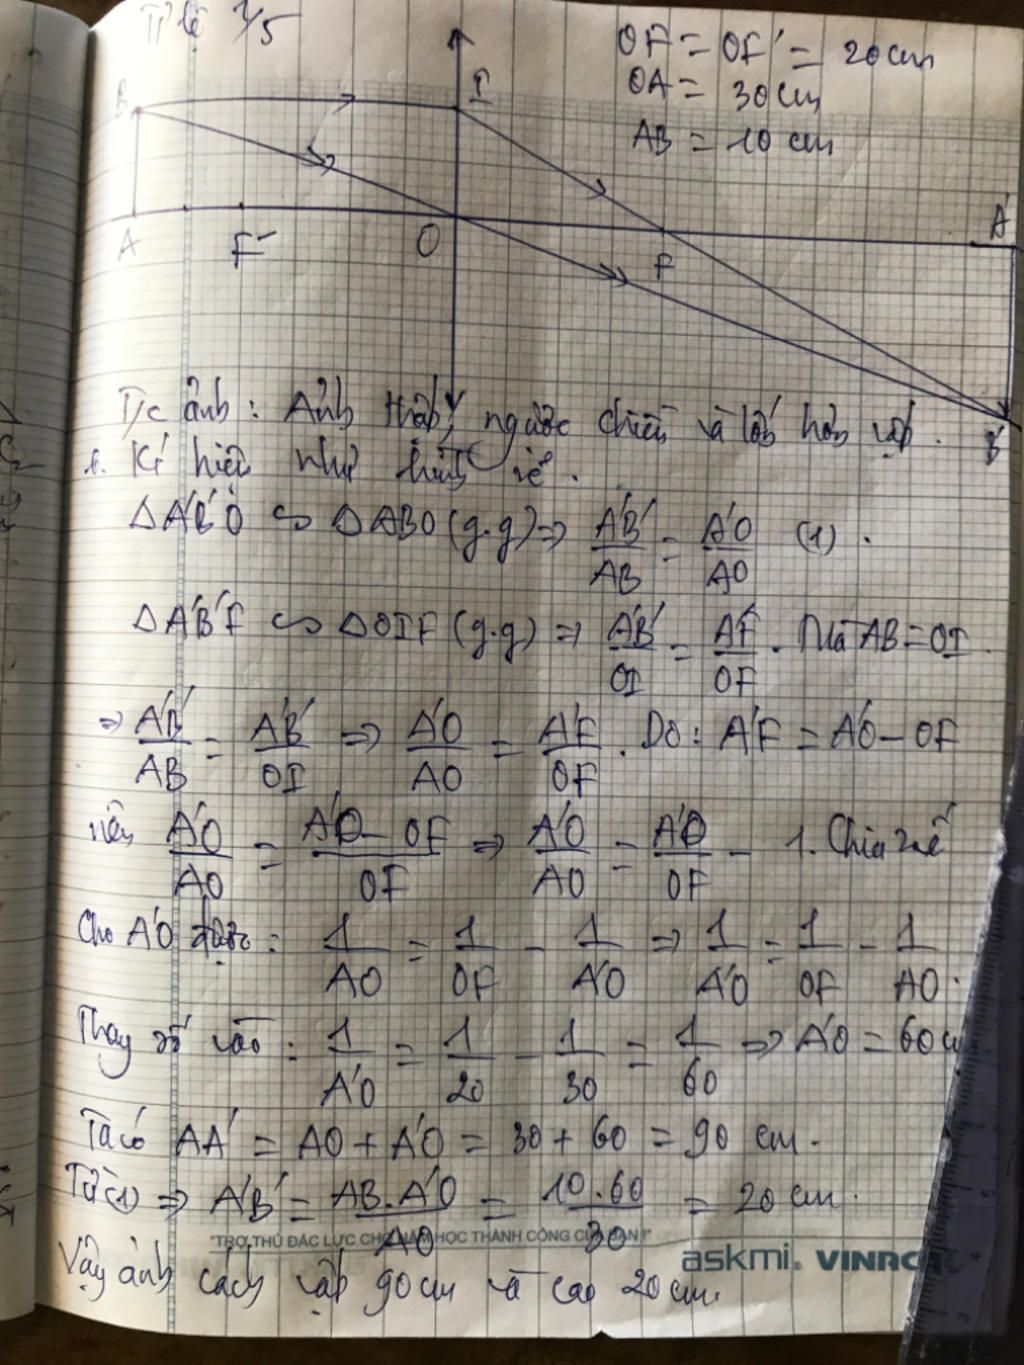 Tỉ lệ 1/5
OF = OF' = 20 cm
OA = 30 cm
AB = 10 cm
B I
A F' O F A'
B'
T/c ảnh: Ảnh thật, ngược chiều và lớn hơn vật.
Kí hiệu như hình vẽ.
ΔA'B'O ∽ ΔABO (g.g) ⇒ A'B'/AB = A'O/AO (1).
ΔA'B'F ∽ ΔOIF (g.g) ⇒ A'B'/OI = A'F/OF. Mà AB = OI.
⇒ A'B'/AB = A'B'/OI ⇒ A'O/AO = A'F/OF. Do: A'F = A'O - OF
nên A'O/AO = A'O - OF/OF ⇒ A'O/AO = A'O/OF - 1. Chia 2 vế
Cho A'O được: 1/AO = 1/OF - 1/A'O ⇒ 1/A'O = 1/OF - 1/AO.
Thay số vào: 1/A'O = 1/20 - 1/30 = 1/60 ⇒ A'O = 60 cm
Ta có AA' = AO + A'O = 30 + 60 = 90 cm.
Từ (1) ⇒ A'B' = AB.A'O/AO = 10.60/30 = 20 cm.
"TRỢ THỦ ĐẮC LỰC CHO NĂM HỌC THÀNH CÔNG CỦA BẠN!"
askmi. VINAC
Vậy ảnh cách vật 90 cm và cao 20 cm.